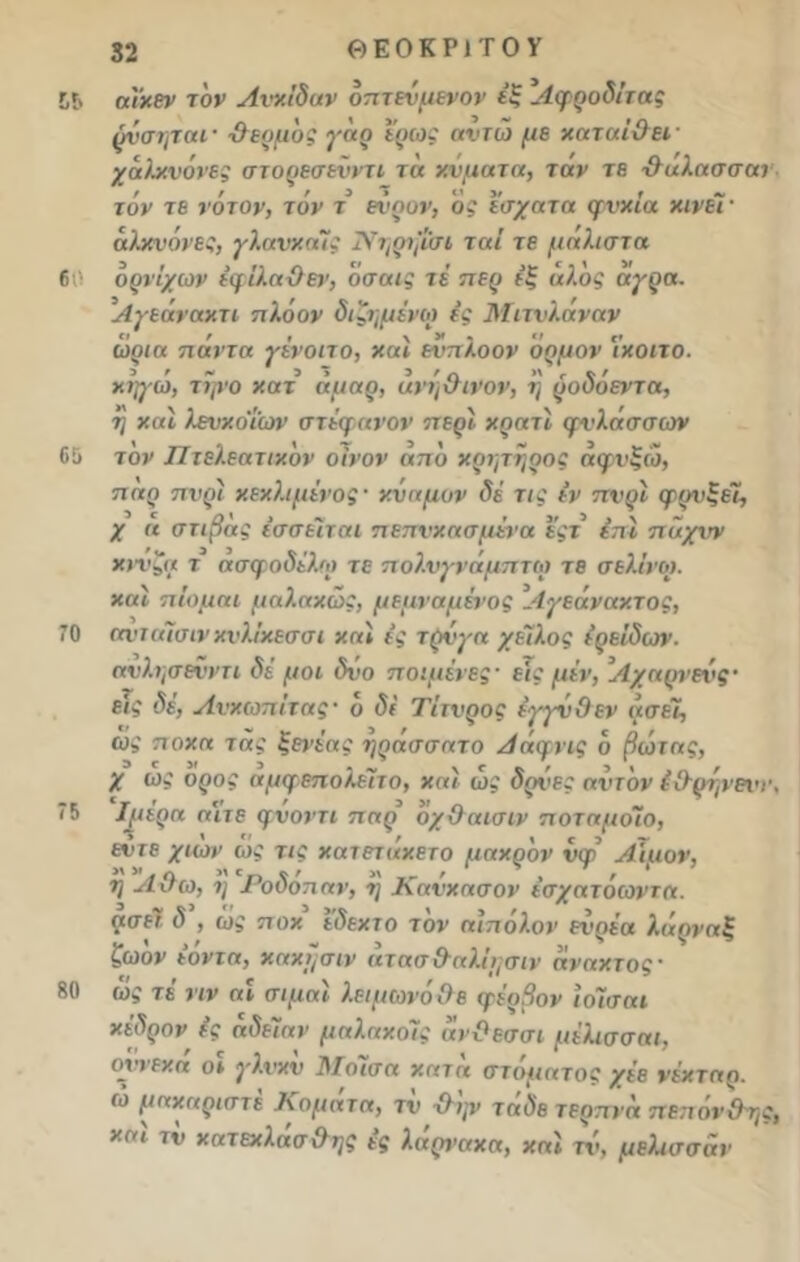 32 ΘΕΟΚΡΙΤΟΥ
55 αἴκεν τὸν Λυκίδαν ὀπτεύμενον ἐξ Ἀφροδίτας
ῥύσηται· θερμὸς γὰρ ἔρως αὐτῶ με καταίθει·
χἀλκυόνες στορεσεῦντι τὰ κύματα, τάν τε θάλασσαν
τόν τε νότον, τόν τ’ εὖρον, ὃς ἔσχατα φυκία κινεῖ·
ἀλκυόνες, γλαυκαῖς Νηρηΐσι ταί τε μάλιστα
60 ὀρνίχων ἐφίλαθεν, ὅσαις τέ περ ἐξ ἁλὸς ἄγρα.
Ἀγεάνακτι πλόον διζημένῳ ἐς Μιτυλάναν
ὥρια πάντα γένοιτο, καὶ εὔπλοον ὅρμον ἵκοιτο.
κἠγώ, τῆνο κατ’ ἆμαρ, ἀνήθινον, ἢ ῥοδόεντα,
ἢ καὶ λευκοΐων στέφανον περὶ κρατὶ φυλάσσων
65 τὸν Πτελεατικὸν οἶνον ἀπὸ κρητῆρος ἀφυξῶ,
πὰρ πυρὶ κεκλιμένος· κύαμον δέ τις ἐν πυρὶ φρυξεῖ,
χ’ ἁ στιβὰς ἐσσεῖται πεπυκασμένα ἔςτ’ ἐπὶ πᾶχυν
κνύζᾳ τ’ ἀσφοδέλῳ τε πολυγνάμπτῳ τε σελίνῳ.
καὶ πίομαι μαλακῶς, μεμναμένος Ἀγεάνακτος,
70 αὐταῖσιν κυλίκεσσι καὶ ἐς τρύγα χεῖλος ἐρείδων.
αὐλησεῦντι δέ μοι δύο ποιμένες· εἷς μέν, Ἀχαρνεύς·
εἷς δέ, Λυκωπίτας· ὁ δὲ Τίτυρος ἐγγύθεν ᾀσεῖ,
ὥς ποκα τᾶς ξενέας ἠράσσατο Δάφνις ὁ βώτας,
χ’ ὡς ὄρος ἀμφεπολεῖτο, καὶ ὡς δρύες αὐτὸν ἐθρήνευν,
75 Ἱμέρα αἵτε φύοντι παρ’ ὄχθαισιν ποταμοῖο,
εὖτε χιὼν ὥς τις κατετάκετο μακρὸν ὑφ’ Αἷμον,
ἢ Ἄθω, ἢ Ῥοδόπαν, ἢ Καύκασον ἐσχατόωντα.
ᾀσεῖ δ’, ὥς ποκ’ ἔδεκτο τὸν αἰπόλον εὐρέα λάρναξ
ζωὸν ἐόντα, κακῇσιν ἀτασθαλίῃσιν ἄνακτος·
80 ὥς τέ νιν αἱ σιμαὶ λειμωνόθε φέρβον ἰοῖσαι
κέδρον ἐς ἁδεῖαν μαλακοῖς ἄνθεσσι μέλισσαι,
οὕνεκά οἱ γλυκὺ Μοῖσα κατὰ στόματος χέε νέκταρ.
ὦ μακαριστὲ Κομάτα, τύ θὴν τάδε τερπνὰ πεπόνθης,
καὶ τὺ κατεκλάσθης ἐς λάρνακα, καὶ τύ, μελισσᾶν